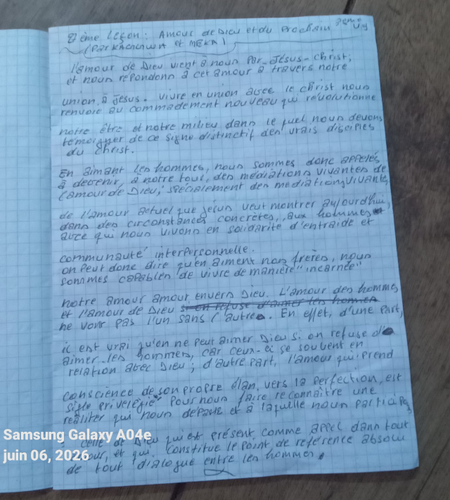 8ème Leçon: Amour de Dieu et du Prochain
(par KACHUNGWA et MEKA)
L'amour de Dieu vient à nous par Jésus-Christ,
et nous répondons à cet amour à travers notre
union à Jésus. Vivre en union avec le christ nous
renvoie au commadement nouveau qui révolutionne
notre être et notre milieu dans lequel nous devons
témoigner de ce signe distinctif des vrais disciples
du Christ.
En aimant les hommes, nous sommes donc appelés
à devenir, à notre tour, des médiations vivantes de
l'amour de Dieu, spécialement des médiations vivantes
de l'amour actuel que Jésus veut montrer aujourd'hui,
dans des circonstances concrètes, aux hommes
avec qui nous vivons en solidarité d'entraide et
communauté interpersonnelle.
on peut donc dire qu'en aiment nos frères, nous
sommes capables de vivre de manière "incarnée"
notre amour amour envers Dieu. L'amour des hommes
et l'amour de Dieu si on refuse d'aimer les hommes
ne vont pas l'un sans l'autre. En effet, d'une part,
il est vrai qu'en ne peut aimer Dieu si on refuse d'
aimer les hommes, car ceux-ci se souvent en
relation avec Dieu; d'autre part, l'amour qui prend
conscience de son propre élan, vers la perfection, est
signe privilégié pour nous faire reconnaître une
réaliter qui nous dépasse et à laquelle nous participons
celle de Dieu qui est présent comme appel dans tout
amour, et qui constitue le point de référence absolu
de tout dialogue entre les hommes.
Samsung Galaxy A04e
juin 06, 2026